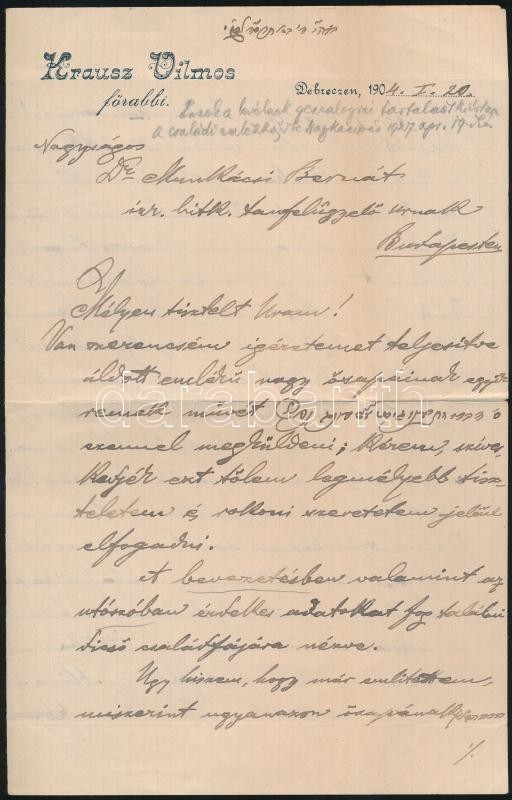 Krausz Vilmos
főrabbi.
Debreczen, 1904. I. 20.
Ennek a levélnek genealogiai tartalmát
a családi emlékkönyv 1927 apr. 17-én
Nagyságos
Dr Munkácsi Bernát
izr. hitk. tanfelügyelő urnak
Budapesten
Mélyen tisztelt Uram!
Van szerencsém igéretemet teljesitve
áldott emlékű nagy ősapáinak egyik
remek művét
ezennel megküldeni; kérem, szives-
kedjék ezt tőlem legmélyebb tisz-
teletem és rokoni szeretetem jeléül
elfogadni.
A bevezetésben valamint az
utószóban érdekes adatokat fog találni
dicső családfájára nézve.
Ugy hiszem, hogy már emlitettem,
miszerint ugyanazon ősapának
1/.
darabanth